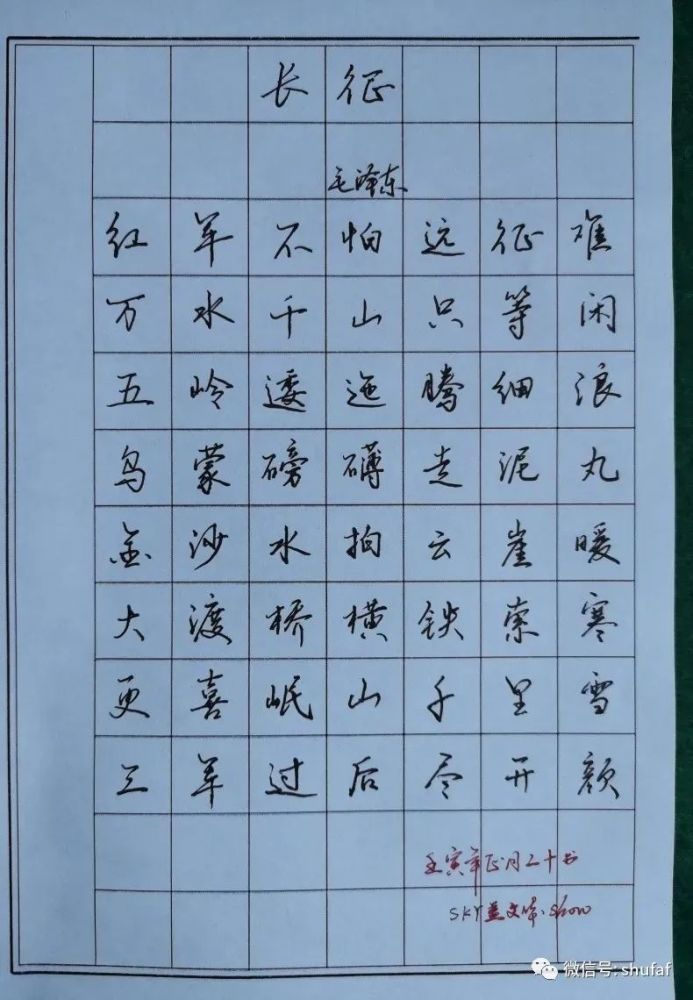 长征
毛泽东
红军不怕远征难
万水千山只等闲
五岭逶迤腾细浪
乌蒙磅礴走泥丸
金沙水拍云崖暖
大渡桥横铁索寒
更喜岷山千里雪
三军过后尽开颜
壬寅年正月二十书
SKY文华.Show
微信号: shufaf